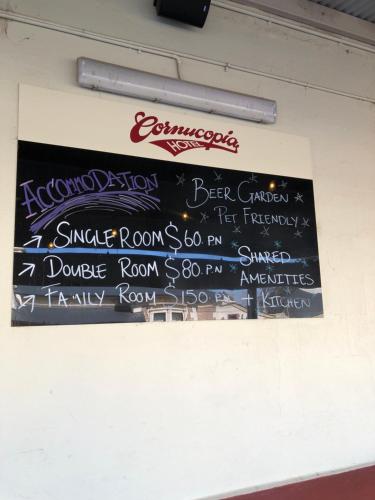 Cornucopia
HOTEL
ACCOMMODATION
BEER GARDEN
PET FRIENDLY
→ SINGLE ROOM $60 PN
→ DOUBLE ROOM $80 P.N
→ FAMILY ROOM $150 PN
SHARED
AMENITIES
+ KITCHEN